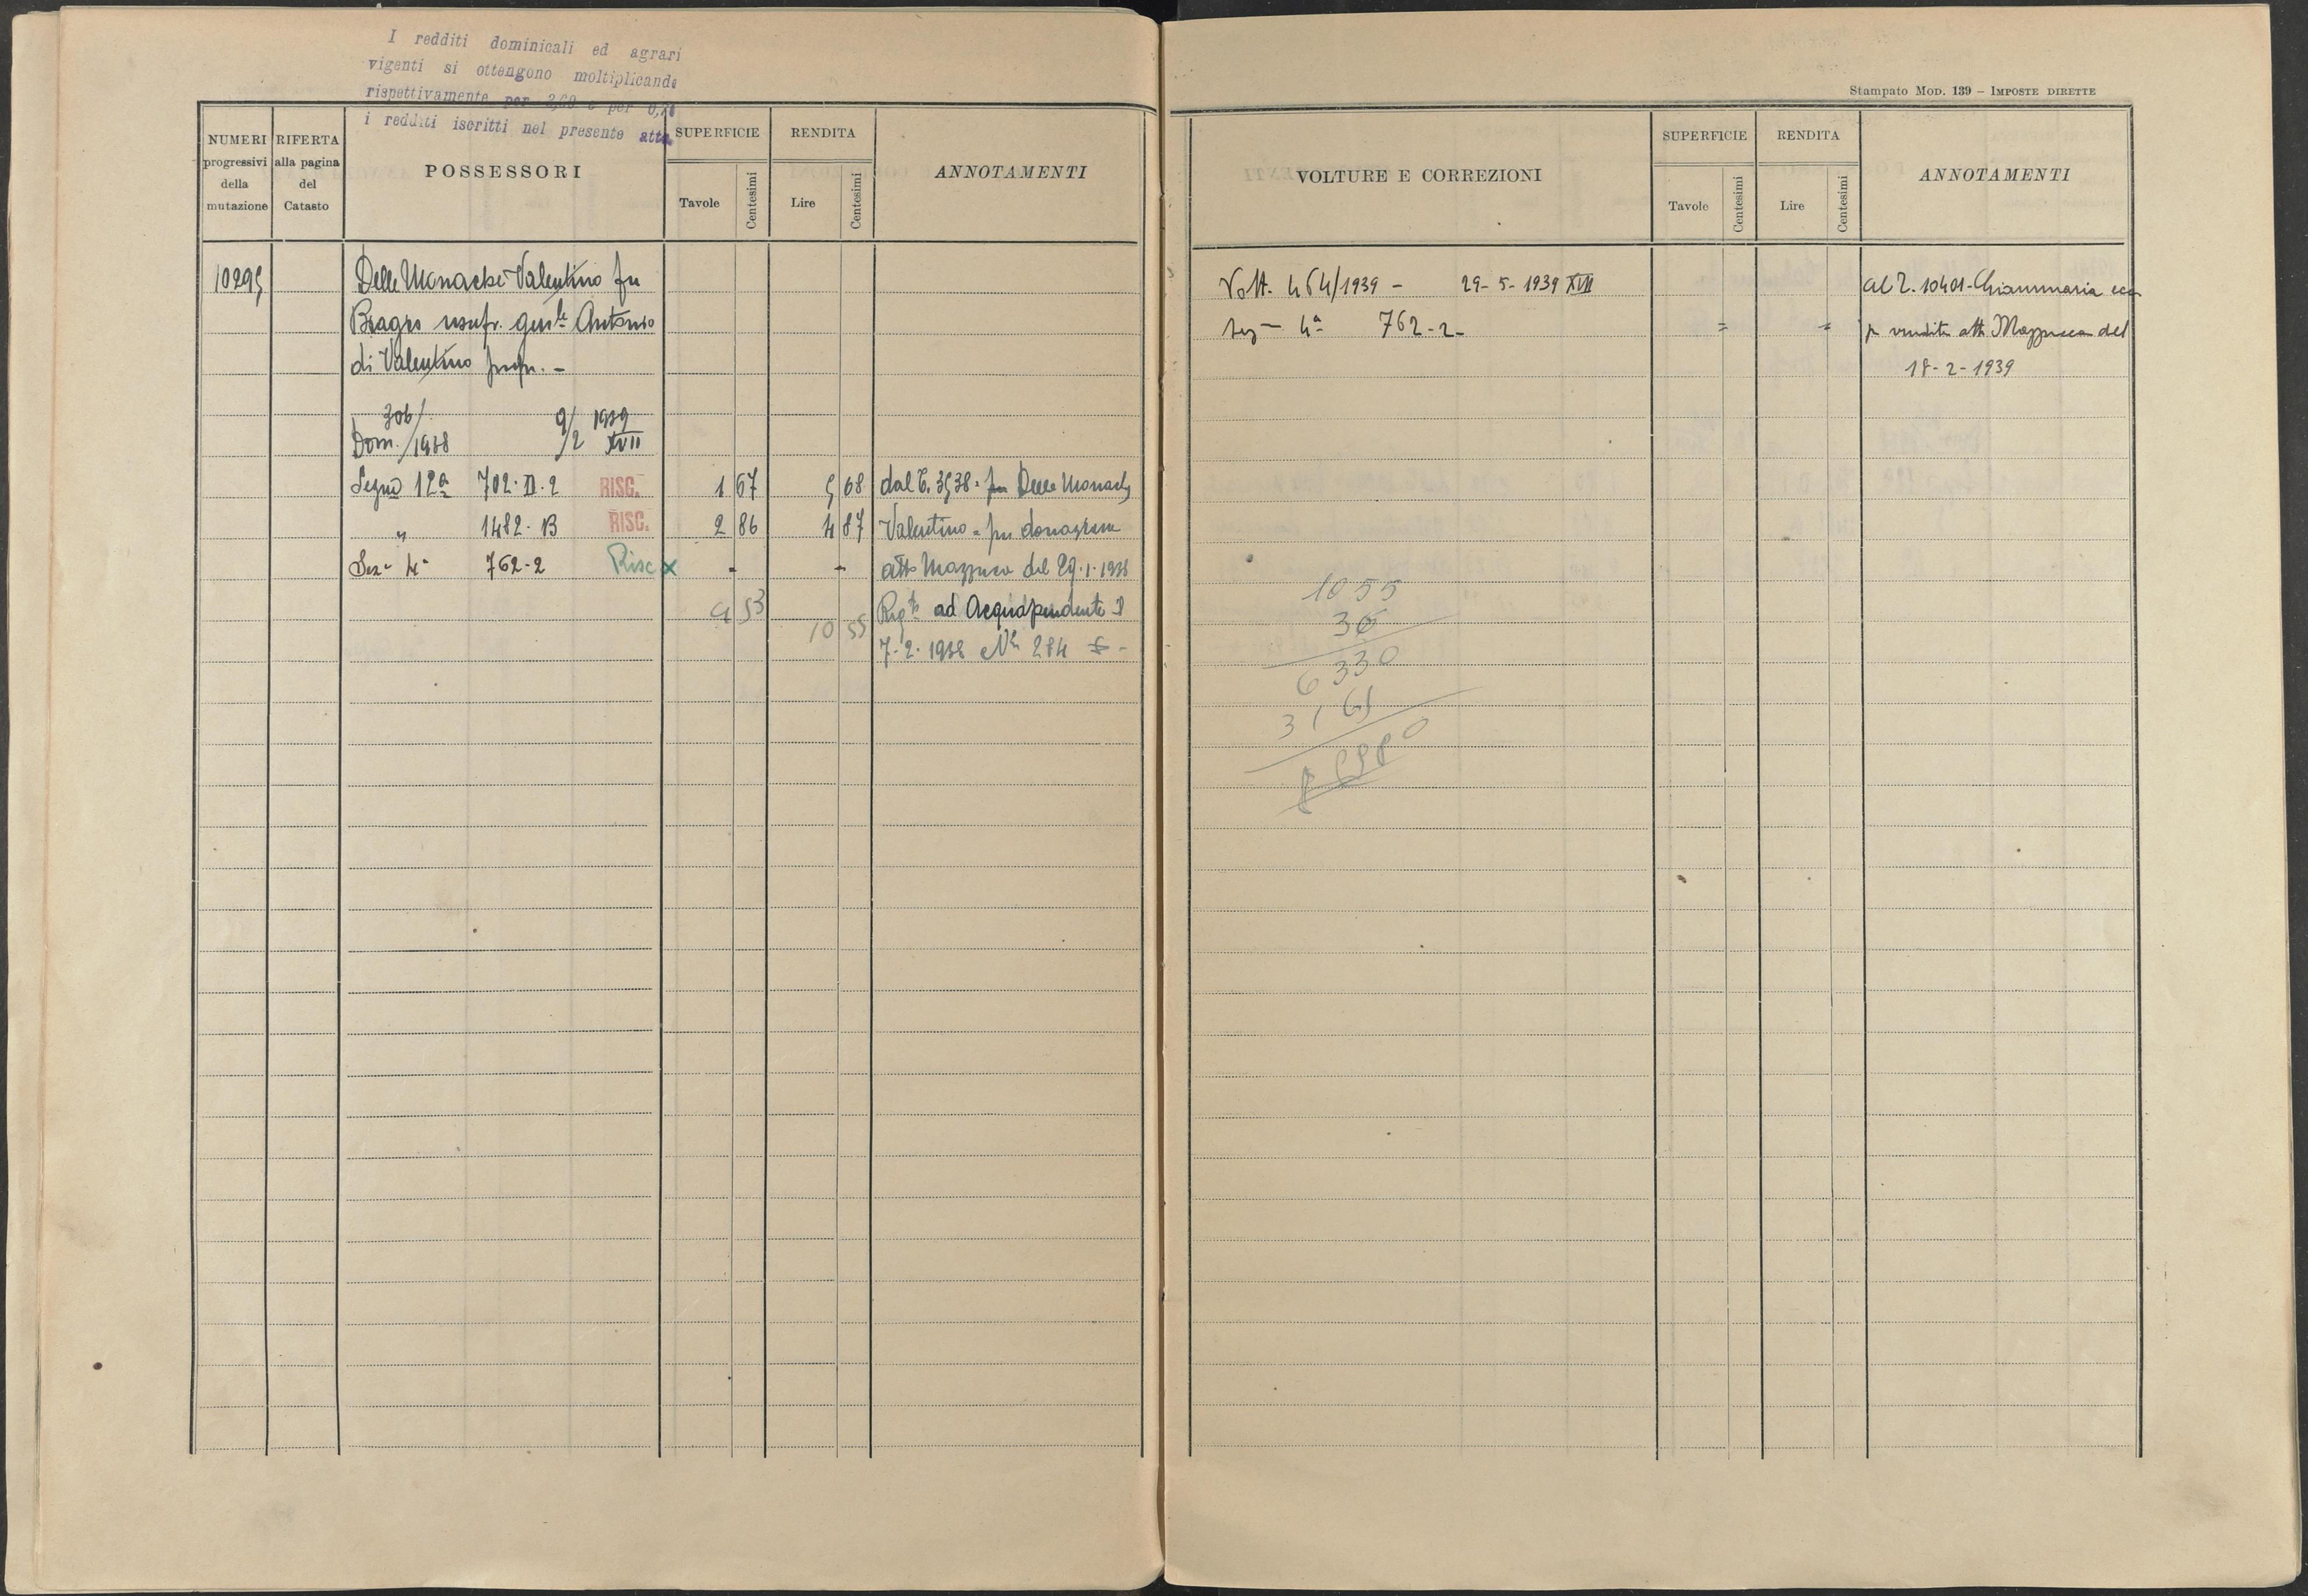 I redditi dominicali ed agrari
vigenti si ottengono moltiplicando
rispettivamente per e per
i redditi iscritti nel presente atto.
NUMERI
progressivi
della
mutazione
RIFERTA
alla pagina
del
Catasto
POSSESSORI
SUPERFICIE
Tavole
Centesimi
RENDITA
Lire
Centesimi
ANNOTAMENTI
10295
Delle Monache Valentino fu
Biagio usufr. Antonio
di Valentino propr. -
306/
Dom. /1938 9/2 1939 XVII
Segno 12ª 702-II-2 RISC. 1 67 5 68 dal T. 3538 = Delle Monache
" 1482-B RISC. 2 86 4 87 Valentino = per donazione
Sez- 4ª 762-2 Risc x - - atto Mazzucca del 29-1-1938
4 53 10 55 Regto ad Acquapendente il
7-2-1938 No 284
Stampato MOD. 139 – IMPOSTE DIRETTE
VOLTURE E CORREZIONI
SUPERFICIE
Tavole
Centesimi
RENDITA
Lire
Centesimi
ANNOTAMENTI
Volt. 464/1939 - 29-5-1939 XVII al T. 10401-Giammaria ecc
sez- 4ª 762-2- = = p vendita att Mazzucca del
18-2-1939
1055
36
6330
3165